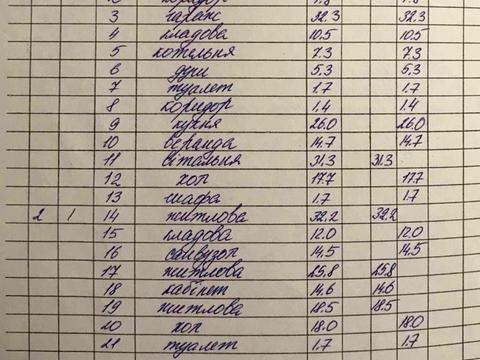 коридор
3 гараж 32.3 32.3
4 кладова 10.5 10.5
5 котельня 7.3 7.3
6 душ 5.3 5.3
7 туалет 1.7 1.7
8 коридор 1.4 1.4
9 кухня 26.0 26.0
10 веранда 14.7 14.7
11 вітальня 31.3 31.3
12 хол 17.7 17.7
13 шафа 1.7 1.7
2 1 14 житлова 32.2 32.2
15 кладова 12.0 12.0
16 санвузол 14.5 14.5
17 житлова 25.8 25.8
18 кабінет 14.6 14.6
19 житлова 18.5 18.5
20 хол 18.0 18.0
21 туалет 1.7 1.7